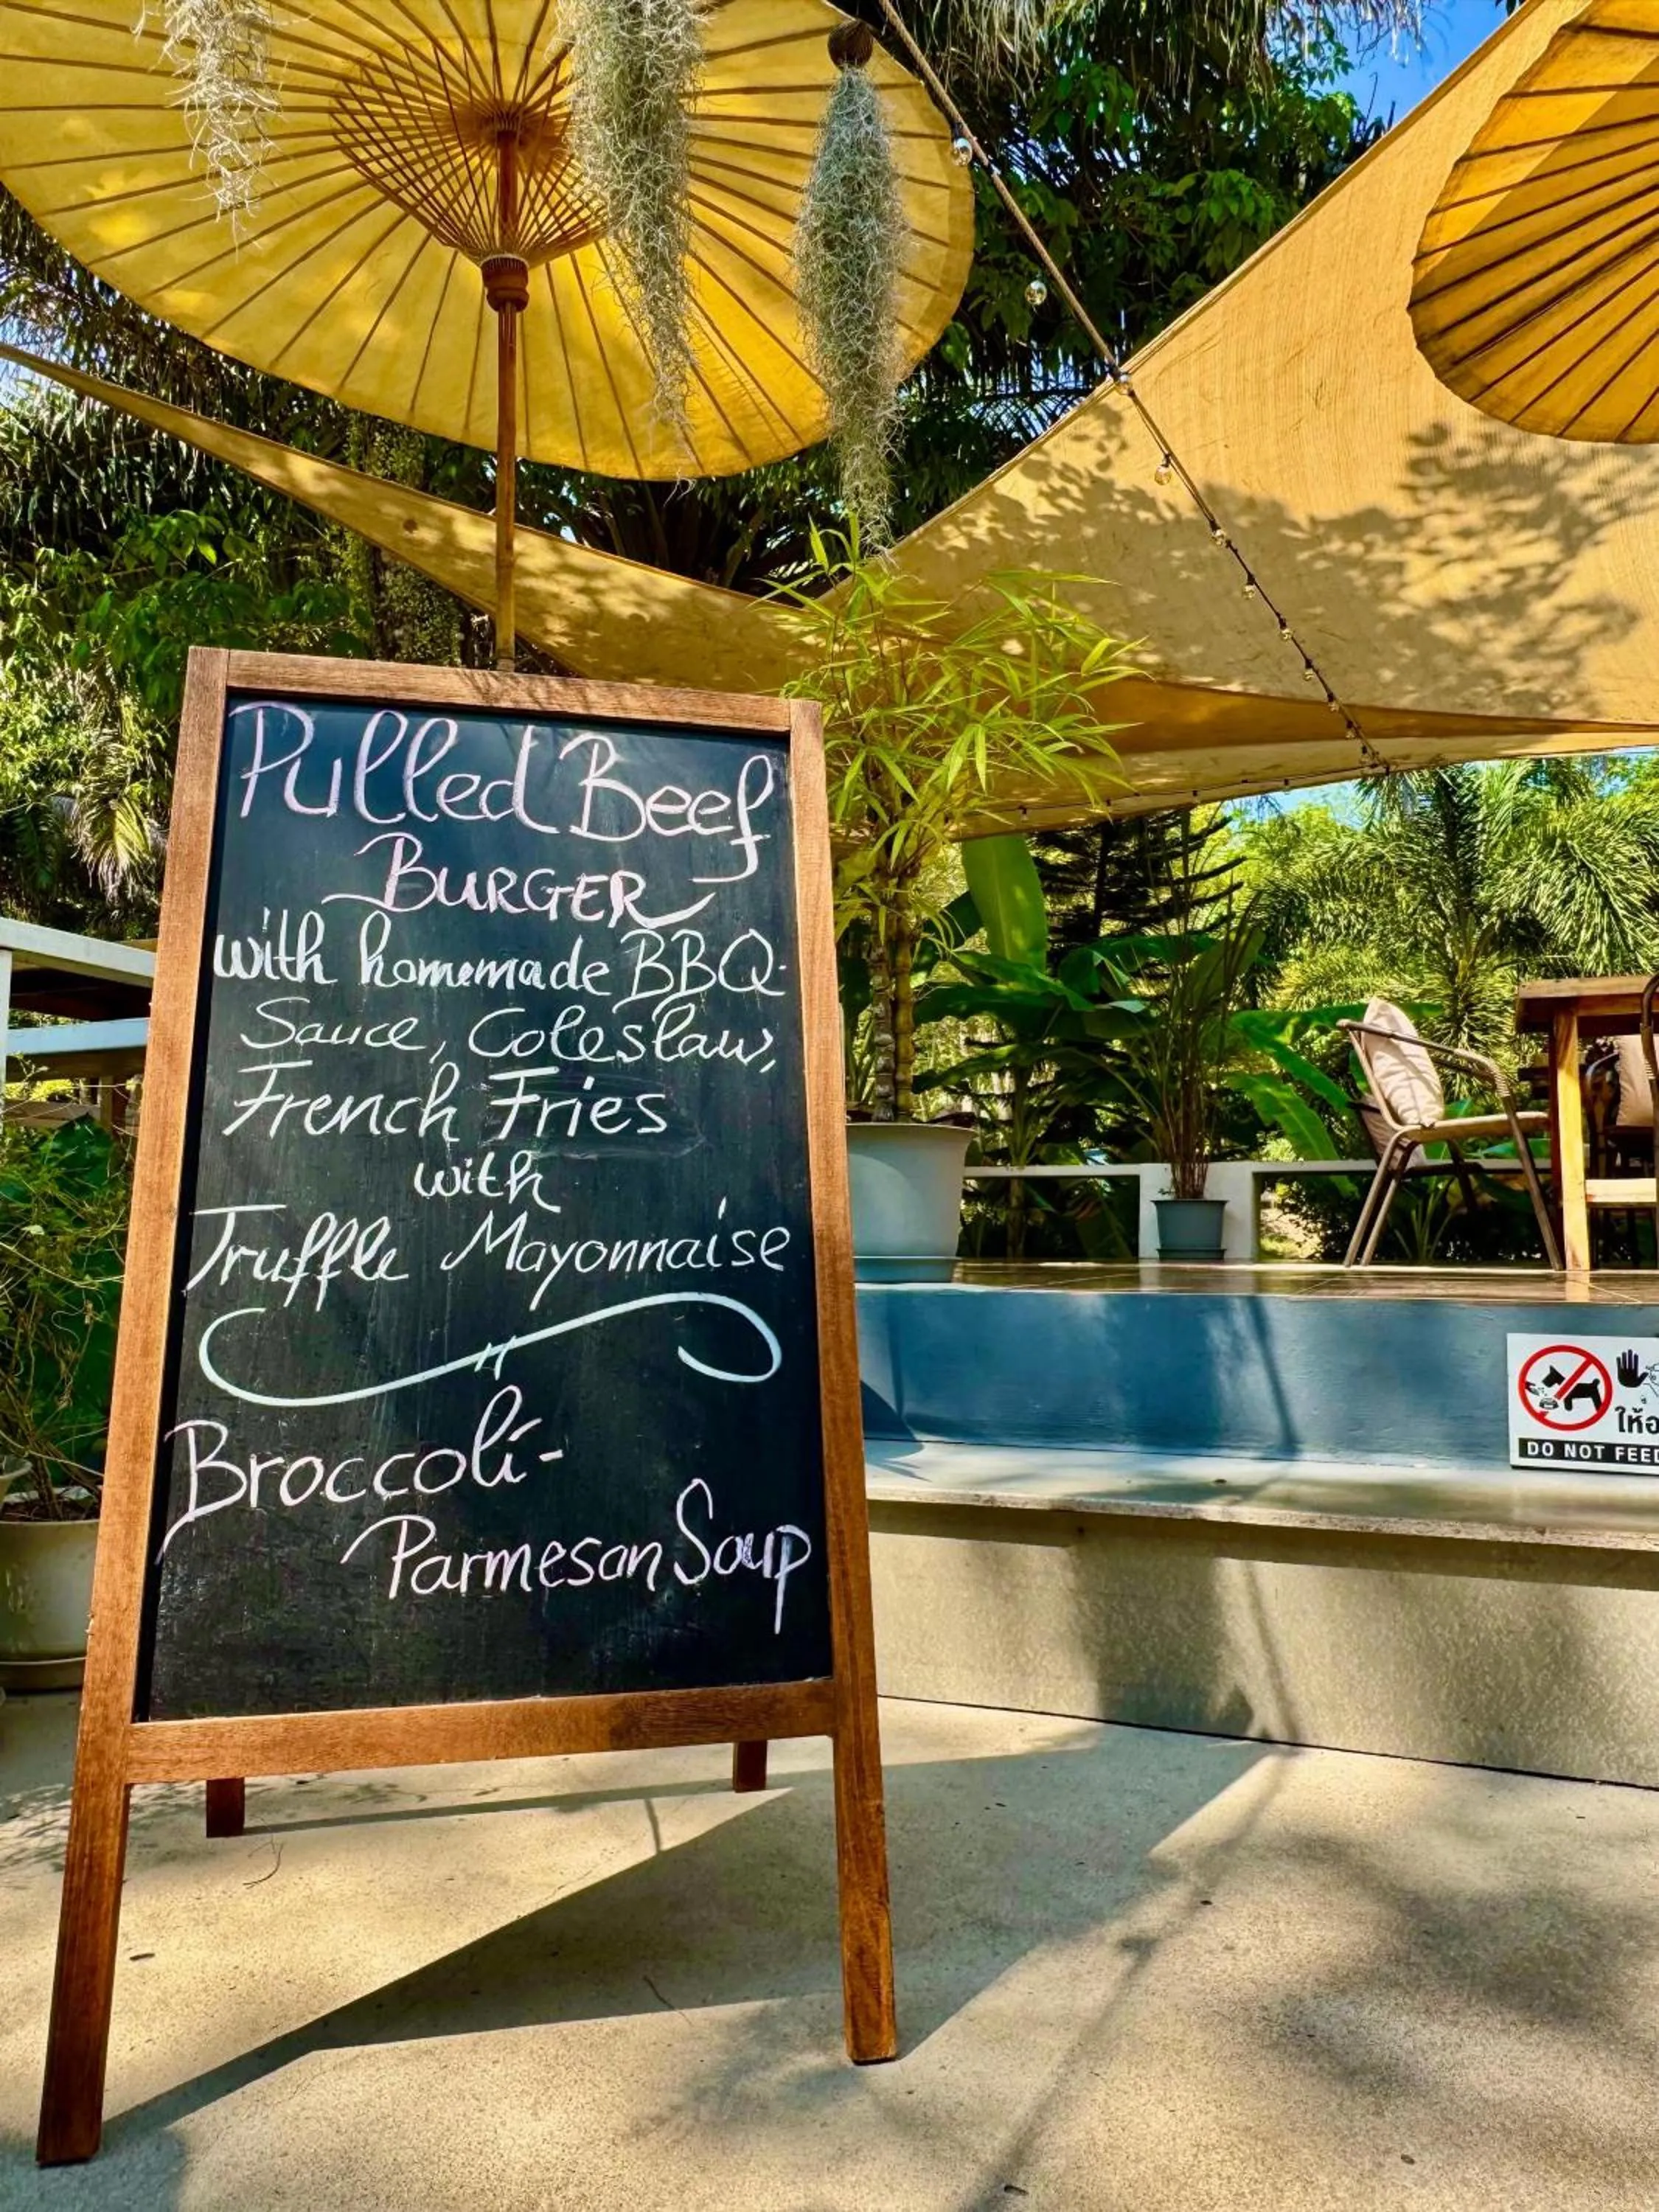 Pulled Beef
BURGER
with homemade BBQ-
Sauce, Coleslaw,
French Fries
with
Truffle Mayonnaise
Broccoli-
Parmesan Soup
ให้อ
DO NOT FEED